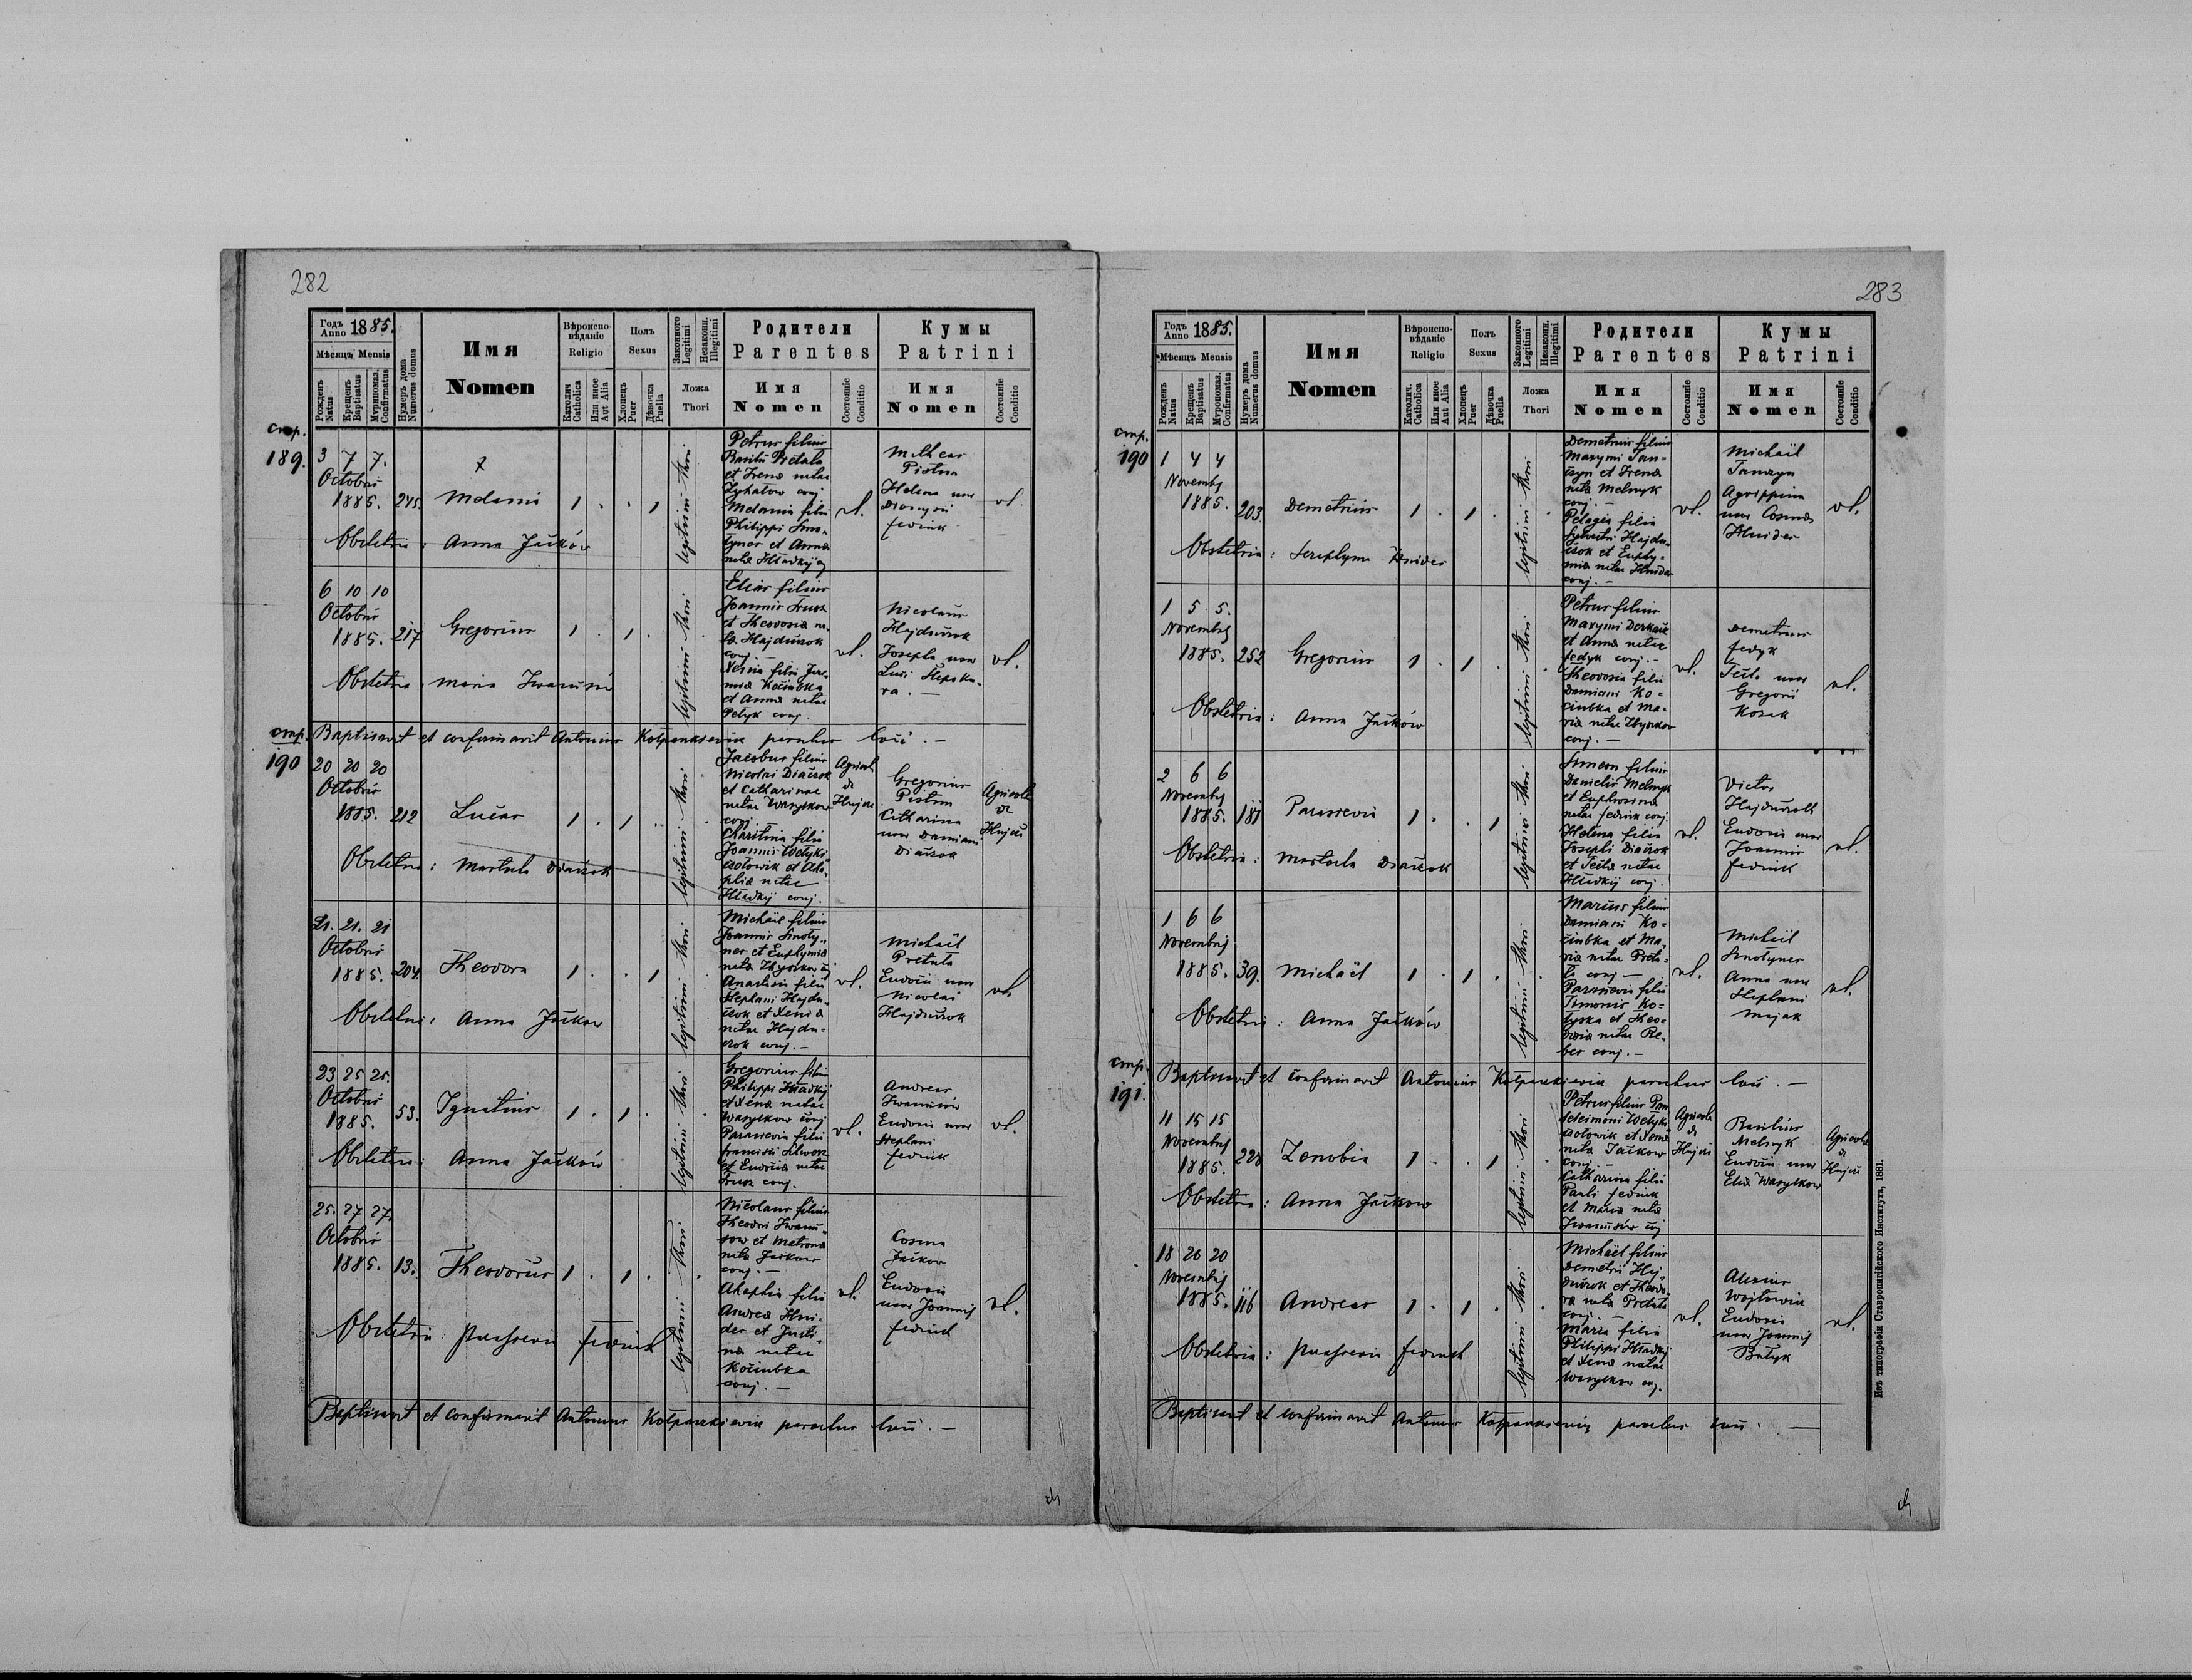 282
Годъ Anno 1885.
Мѣсяцъ Mensis
Рожденъ Natus
Крещенъ Baptisatus
Муропомаз. Confirmatus
Нумеръ дома Numerus domus
Имя
Nomen
Вѣроиспо-
вѣданіе
Religio
Католич Catholica
Или иное Aut Alia
Полъ
Sexus
Хлопецъ Puer
Дѣвочка Puella
Законного Legitimi
Незаконн. Illegitimi
Ложа
Thori
Родители
Parentes
Имя
Nomen
Состояніе Conditio
Кумы
Patrini
Имя
Nomen
Состояніе Conditio
стр.
189.
3 7 7.
Octobris
1885. 245.
Melania
1 . . 1
legitimi thori
Petrus filius
Basilii Pretula
et Irena natae
conj.
Melania filia
Philippi Smo-
tyner et Anna
nata Hładkij cj
vl.
Pistun
Helena uxor
Dionysii
Fediuk
vl.
Obstetrix: Anna Jaćków
6 10 10
Octobris
1885. 217
Gregorius
1 . 1 .
legitimi thori
Elias filius
Joannis Trusz
et Theodosia na-
ta Hajduczok
conj. -
Xenia filia Jere-
mia Koćiubka
et Anna natae
Petyk conj.
vl.
Nicolaus
Hajduczok
Josepha uxor
Lucae
vl.
Obstetrix: Maria Iwanusiw
Baptisavit et confirmavit Antonius Kołpaczkiewicz parochus loci. -
стр.
190
20 20 20
Octobris
1885. 212
Lucas
1 . 1 .
legitimi thori
Jacobus filius
Nicolai Diaczok
et Catharinae
natae Wasylkow
conj. -
Charitina filia
Joannis Wełyki
sołowik et Aha-
phia natae
Hładkij conj.
Agricola
de
Hnjcu
Gregorius
Pistun
Catharina
uxor Damiani
Diaczok
Agricola
de
Hnjcu
Obstetrix: Martula Diaczok
21. 21. 21
Octobris
1885. 204.
Theodora
1 . . 1
legitimi thori
Michael filius
Joannis Smoty-
ner et Euphymia
nata cj
Anastasia filia
Stephani Hajdu-
czok et Xenia
natae Hajdu-
czok conj. -
vl.
Michaël
Pretula
Eudocia uxor
Nicolai
Hajduczok
vl.
Obstetrix: Anna Jaćkow
23 25 25.
Octobris
1885. 53.
Ignatius
1 . 1 .
legitimi thori
Gregorius filius
Philippi Hładkij
et Xena natae
Wasylkow conj
Parascevia filia
et Eudocia natae
Trusz conj.
vl.
Andreas
Iwanusiów
Eudocia uxor
Stephani
Fediuk
vl.
Obstetrix: Anna Jaćków
25. 27 27.
Octobris
1885. 13.
Theodorus
1 . 1 .
legitimi thori
Nicolaus filius
Theodori Iwanu-
sow et Matrona
nata Jaćkow
conj. -
Ahaphia filia
Andrea Hni-
der et Justi-
na natae
Koćiubka
conj. -
vl.
Cosma
Jaćkow
Eudocia
uxor Joannis
Fediuk
vl.
Obstetrix: Parascevia Fediuk
Baptisavit et confirmavit Antonius Kołpaczkiewicz parochus loci. -
283
Годъ Anno 1885.
Мѣсяцъ Mensis
Рожденъ Natus
Крещенъ Baptisatus
Муропомаз. Confirmatus
Нумеръ дома Numerus domus
Имя
Nomen
Вѣроиспо-
вѣданіе
Religio
Католич. Catholica
Или иное Aut Alia
Полъ
Sexus
Хлопецъ Puer
Дѣвочка Puella
Законного Legitimi
Незаконн. Illegitimi
Ложа
Thori
Родители
Parentes
Имя
Nomen
Состояніе Conditio
Кумы
Patrini
Имя
Nomen
Состояніе Conditio
стр.
190
1 4 4
Novembris
1885. 203.
Demetrius
1 . 1 .
legitimi thori
Demetrius filius
Maxymi Tan-
czyn et Irena
nata Melnyk
conj. -
Pelagia filia
Sylvestri Hajdu-
czok et Euphy-
mia natae Hnider
conj. -
vl.
Michaël
Tanczyn
Agrippina
uxor Cosmae
Hnider
vl.
Obstetrix: Seraphyna Hnider
1 5 5.
Novembris
1885. 252
Gregorius
1 . 1 .
legitimi thori
Petrus filius
Maxymi Derkacz
et Anna natae
Fedyk conj. -
Theodosia filia
Damiani Ko-
ćiubka et Ma-
ria natae
conj. -
vl.
Demetrius
Fedyk
Tecla uxor
Gregorii
Kosak
vl.
Obstetrix: Anna Jaćków
2 6 6
Novembris
1885. 181
Parascevia
1 . . 1
legitimi thori
Simeon filius
Danielis Melnyk
et Euphrosina
natae Fediuk conj
Helena filia
Josephi Diaczok
et Tecla natae
Hładkij conj.
vl.
Victor
Hajduczok
Eudocia uxor
Joannis
Fediuk
vl.
Obstetrix: Martula Diaczok
1 6 6
Novembris
1885. 39.
Michaël
1 . 1 .
legitimi thori
Marcus filius
Damiani Ko-
ćiubka et Ma-
ria natae Pretu-
la conj -
Parascevia filia
Simonis Ko-
tyska et Theo-
dosia natae Re-
ber conj. -
vl.
Michaël
Smotyner
Anna uxor
Stephani
Majak
vl.
Obstetrix: Anna Jaćków
стр.
191.
Baptisavit et confirmavit Antonius Kołpaczkiewicz parochus loci. -
11 15 15
Novembris
1885. 228
Zenobia
1 . . 1
legitimi thori
Petrus filius Pan-
teleimoni Wełyki
sołowik et Xenia
nata Jaćkow
conj. -
Catharina filia
Pauli Fediuk
et Maria nata
Iwanusów conj
Agricola
de
Hnjcu
Basilius
Melnyk
Eudocia uxor
Elia Wasylkow
Agricola
de
Hnjcu
Obstetrix: Anna Jaćkow
18 20 20
Novembris
1885. 116
Andreas
1 . 1 .
legitimi thori
Michaël filius
Demetrii Haj-
duczok et Theodo-
ra nata Pretula
conj. -
Maria filia
Philippi Hładkij
et Xena natae
Wasylkow cj.
vl.
Alexius
Wojtowicz
Eudocia
uxor Joannis
Bałyk
vl.
Obstetrix: Parascevia Fediuk
Baptisavit et confirmavit Antonius Kołpaczkiewicz parochus loci. -
Изъ типографіи Ставропигійского Института, 1881.